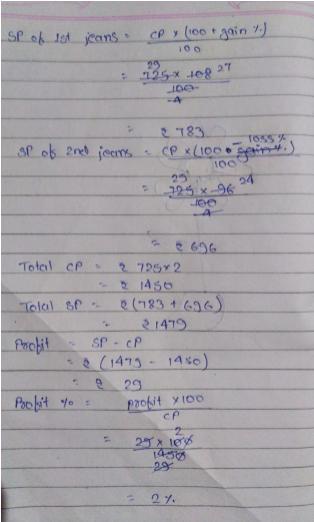 SP of 1st jeans = CP × (100 + gain %)
100
29 27
= 725 × 108
100
4
= ₹ 783
SP of 2nd jeans = CP × (100 - loss %)
100
29 24
= 725 × 96
100
4
= ₹ 696
Total CP = ₹ 725×2
= ₹ 1450
Total SP = ₹ (783 + 696)
= ₹ 1479
Profit = SP - CP
= ₹ (1479 - 1450)
= ₹ 29
Profit % = profit × 100
CP
2
= 29 × 100
1450
29
= 2%